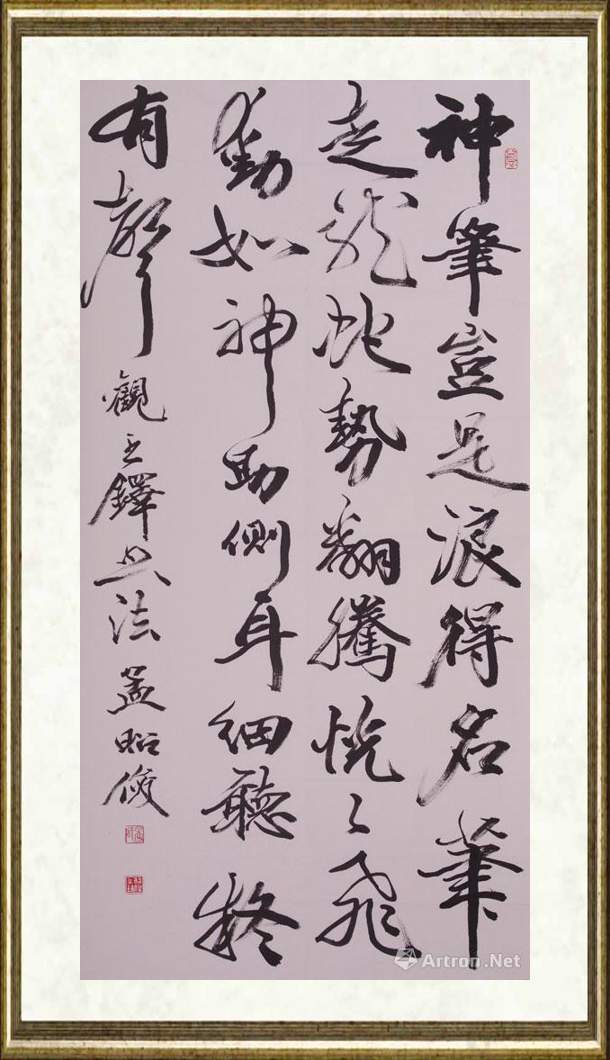 神筆豈是浪得名筆
走龍蛇勢翻騰恍々飛
動如神助側耳細聽疑
有聲 觀王鐸書法 孟昭俊
Artron.Net